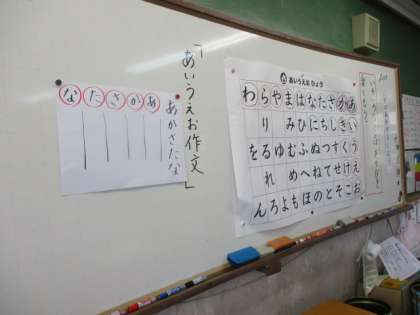 「あいうえお作文」
あかさたな
あ
か
さ
た
な
あいうえお ひょう
わらやまはなたさかあ
り みひにちしきい
をるゆむふぬつすくう
れ めへねてせけえ
んろよもほのとそこお